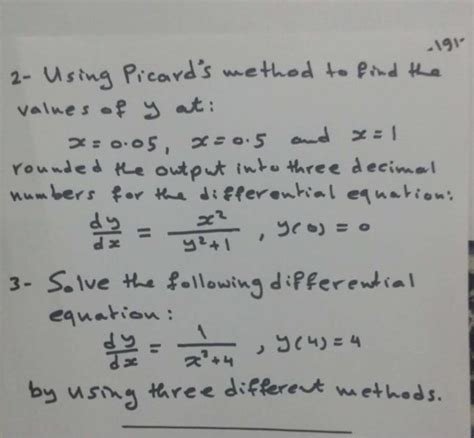 -191-
2- Using Picard's method to find the
values of y at:
x = 0.05, x = 0.5 and x = 1
rounded the output into three decimal
numbers for the differential equation:
dy/dx = x²/(y²+1), y(0) = 0
3- Solve the following differential
equation:
dy/dx = 1/(x²+4), y(4) = 4
by using three different methods.